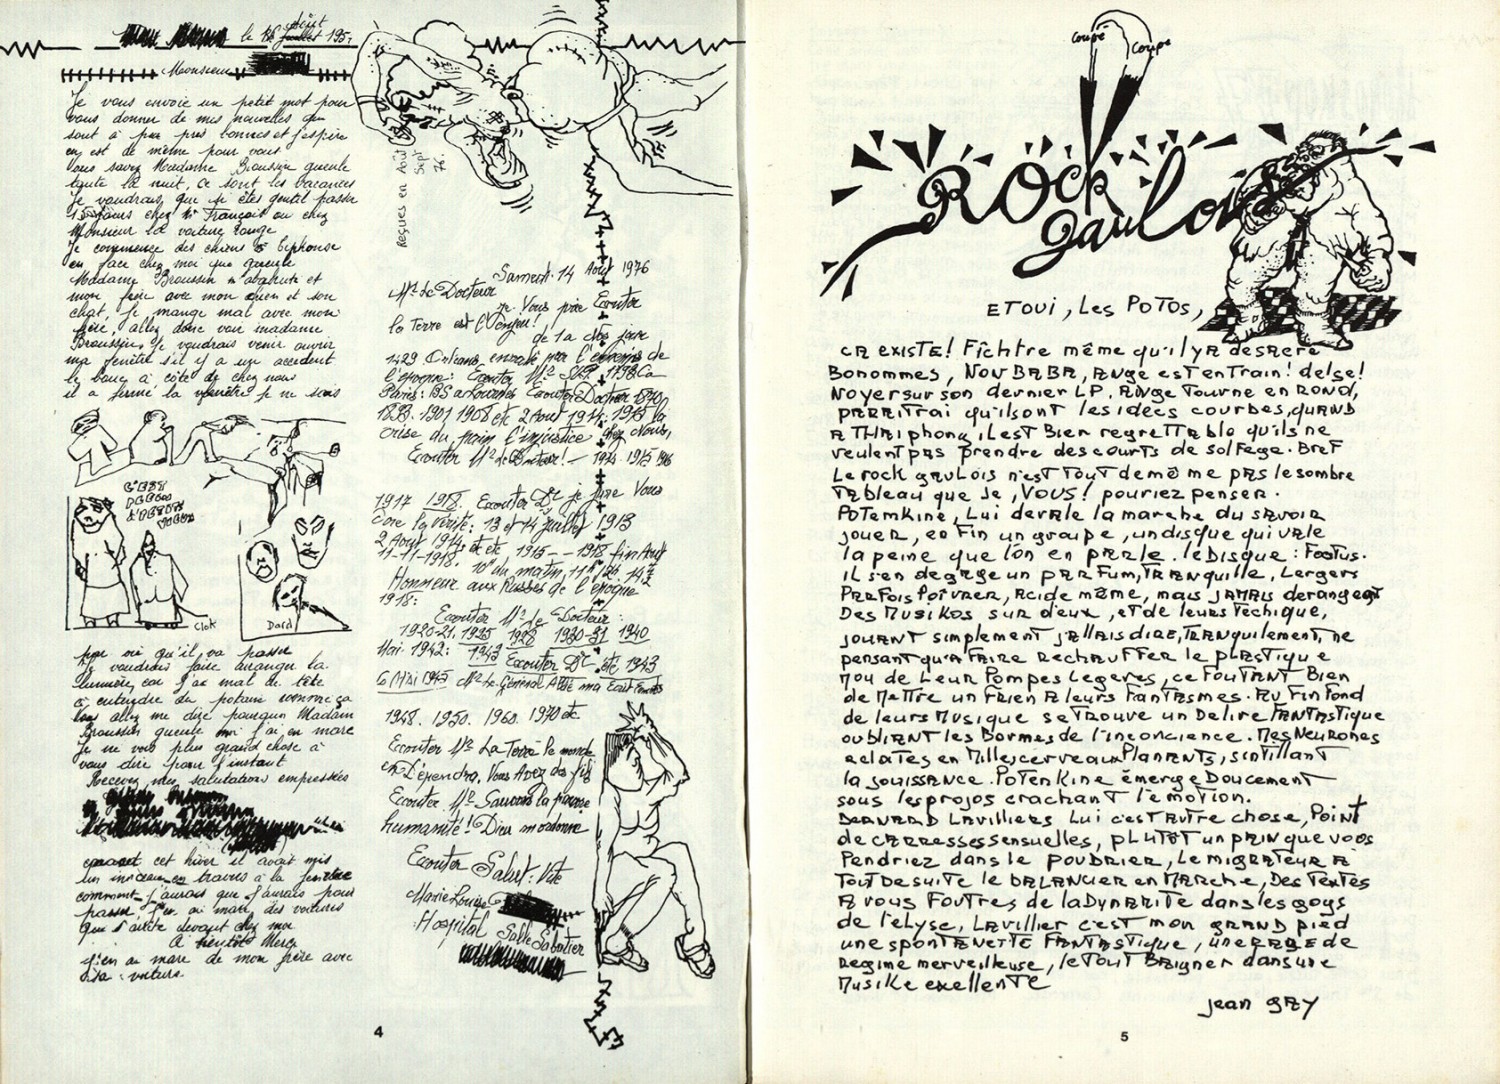 le 16 Août 195.
Monsieur
Je vous envoie un petit mot pour
vous donner de mes nouvelles qui
sont à peu près bonnes et j'espère
en est de même pour vous
vous savez Madame Broussin gueule
toute la nuit, ce sont les vacances
Je voudrais, que si êtes gentil passer
15 jours chez Mr François ou chez
Monsieur la voiture rouge
Je commence des chiens
en face chez moi que gueule
Madame Broussin abahute et
mon frère avec mon chien et son
chat, Je mange mal avec mon
frère, allez donc voir madame
Broussin. Je voudrais venir ouvrir
ma fenêtre s'il y a un accident
le bouc à côté de chez nous
il a fermé la fenêtre je ne sais
C'EST
Clok
Dard
pas ce qu'il va passer
Je voudrais faire arranger la
lumière, car j'ai mal de tête
à entendre du potain comme ça
vous allez me dire pourquoi Madam
Broussin gueule moi j'ai en marre
Je ne vois plus grand chose à
vous dire pour l'instant
Recevez mes salutations empressées
cet hiver il avait mis
un morceau en travers à la fenêtre
comment j'aurais que j'aurais pour
passer, j'en ai marre des voitures
qui s'arrête devant chez moi
A bientôt Merci
j'en ai mare de mon frère avec
sa voiture
Reçues en Août
Sept
76.
Samedi. 14 Août 1976
Mr. le Docteur
je Vous prie Ecouter
la Terre est l'Enjeu!
de 1 a des jour
1429 Orléans, envoyé par l'ennemie de
l'époque: Ecouter Mr
Paris: BS a Lourdes Ecouter Docteur 1870
1893. 1901 1908 etc 2 Août 1914: 1915 la
crise du pain l'injustice chez Nous,
Ecouter Mr le Docteur! - 1974 1975 1976
1917 1918. Ecouter Dr je jure Vous
dire la vérité: 13 et 14 juillet 1913
2 Août 1914. etc etc, 1915 - - 1918 fin Août
11-11-1918. 10h du matin, 11h
Honneur aux Russes de l'époque
1918:
Ecouter Mr le Docteur:
1920-21. 1925 1928 1930-31 1940
Mai. 1942: 1943 Ecouter Dr etc 1943
6 Mai 1945 Mr le Général
1948. 1950. 1960. 1970 etc.
Ecouter Mr La Terre le monde
en Dépendra, Vous Avez des fils
Ecouter Mr Sauvons la pauvre
humanité! Dieu m'ordonne
Ecouter Salut: Vite
Marie Louise
Hospital Salle Sabatier
4
Coupé
Coupé
ROCK
gaulois
ET OUI, Les POTOS,
CA EXISTE! Fîchtre même qu'il y A des sacré
Bonommes, NON BABA, ANge est en train! de lse!
Noyer sur son dernier LP. ANge Tourne en ROND,
PARAITRAI qu'ils ont les idées courbes, quAND
A THRIphong, il est Bien regrettable qu'ils ne
veulent pas prendre des courts de solfege. Bref
Le rock gauLois n'est Tout de mê me pas le sombre
Tableau que Je, VOUS! pouriez penser.
POTemkine, Lui devale la marche du savoir
jouer, en Fin un groupe, un disque qui vale
la peine que l'on en parle. le Disque: Foetus.
il s'en degage un parfum, Tranquille, Lergers
Parfois Poivrer, acide même, mais jamais derangeant
Des Musikos sur d'eux, et de leurs Techique,
jouant simplement jallais dire, Tranquilement, ne
pensant qu'a Faire Rechauffer le plastique
mou de Leur Pompes Legeres, ce foutant Bien
de Mettre un frien A leurs Fantasmes. Au Fin fond
de leurs Musique se Trouve un Delire Fantastique
oubliant les Bormes de l'inconcience. Mes Neurones
eclatés en Milles cerveaux Planants, scintillant
la jouissance. Potenkine émerge Doucement
sous les projos crachant l'emotion.
Bernard Lavilliers Lui c'est autre chose, Point
de caressses sensuelles, plutôt un pain que vous
Pendriez dans le poudrier, Le migrateur a
Tout de suite le balancier en Marche, Des Textes
A vous Foutres de la Dynamite dans les goys
de l'elyse, Lavillier c'est mon grand pied
une spontaneité Fantastique, une rage de
Regime merveilleuse, le Tout Baigner dans une
Musike exellente
jean gay
5